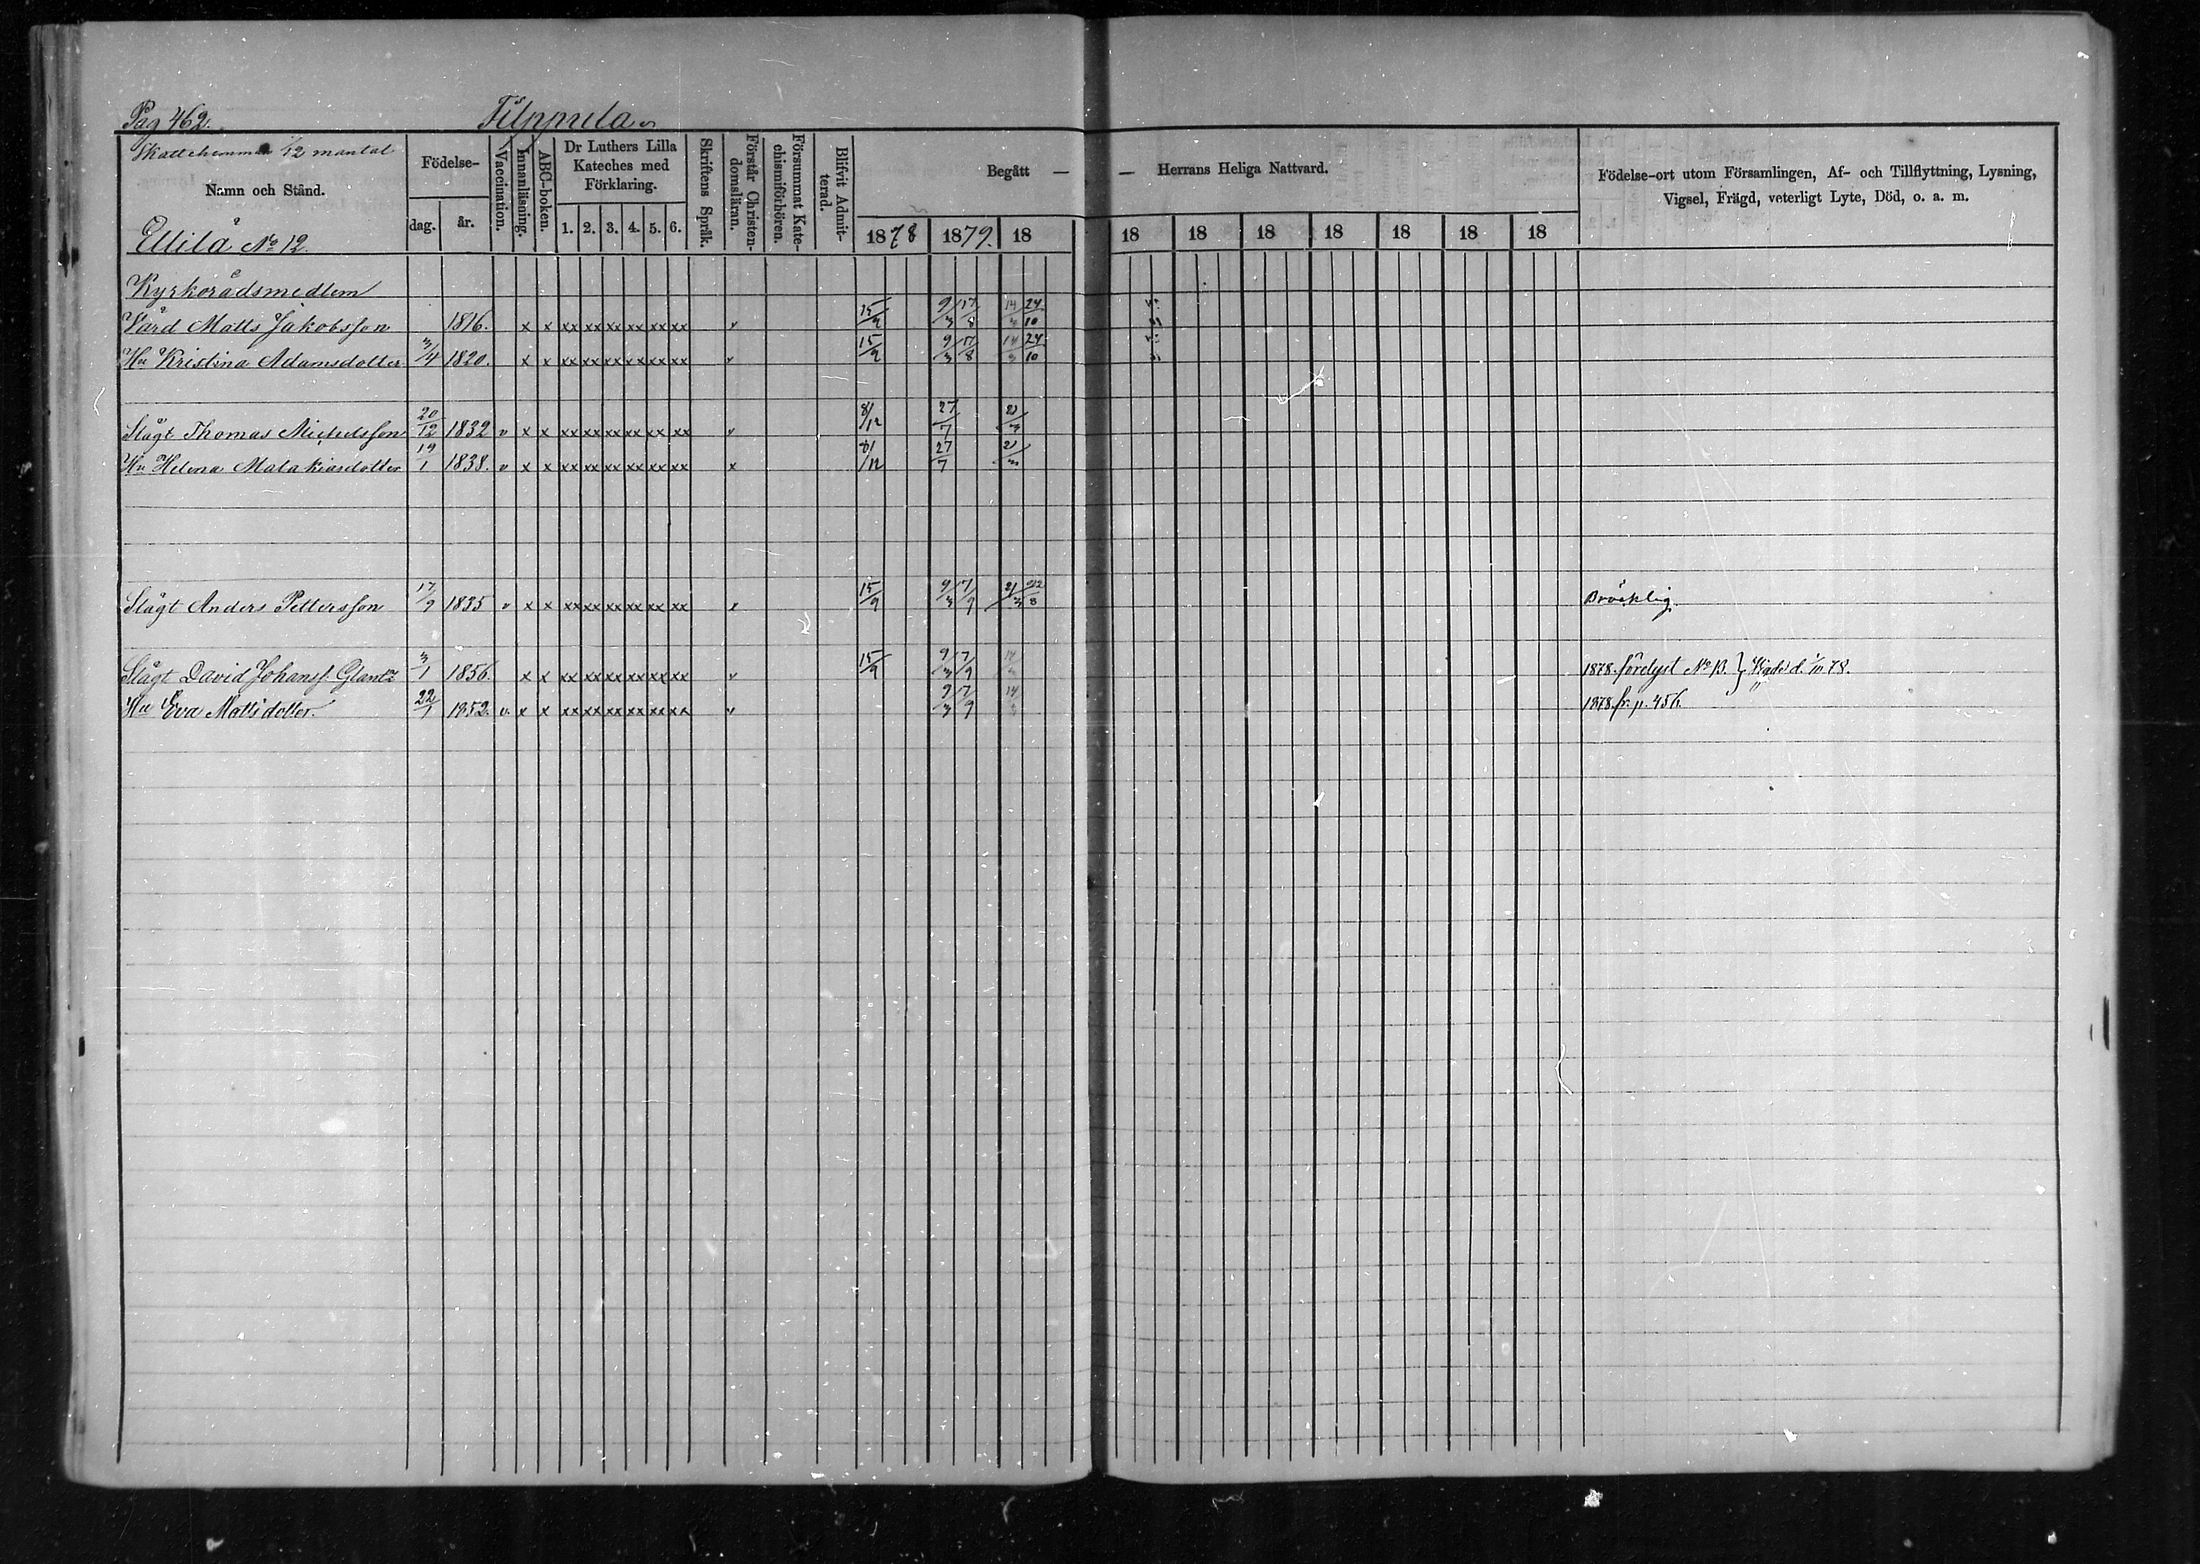 Pag 462. Filppula
Skattehemman 1/12 mantal
Namn och Stånd.
Födelse-
dag. år.
Vaccination.
Innanläsning.
ABC-boken.
Dr Luthers Lilla
Kateches med
Förklaring.
1. 2. 3. 4. 5. 6.
Skriftens Språk.
Förstår Christen-
domsläran.
Försummat Kate-
chismiförhören.
Blifvit Admit-
terad.
Begått — — Herrans Heliga Nattvard.
1878 1879. 18 18 18 18 18 18 18 18
Födelse-ort utom Församlingen, Af- och Tillflyttning, Lysning,
Vigsel, Frägd, veterligt Lyte, Död, o. a. m.
Ellilä No 12.
Kyrkorådsmedlem
Värd Matts Jakobsson 1816. x x xx xx xx xx xx xx v 15/9 9/3 17/8 14/3 24/10
Hu Kristina Adamsdotter 3/4 1820. x x xx xx xx xx xx xx v 15/9 9/3 17/8 14/3 24/10
Slägt Thomas Michelsson 20/12 1832 v x x xx xx xx xx xx xx v 8/12 27/7 21/3
Hu Helena Malakiasdotter 19/1 1838. v x x xx xx xx xx xx xx x 8/12 27/7 21/3
Slägt Anders Pettersson 17/9 1835 v x x xx xx xx xx xx xx v 15/9 9/3 7/9 21/3 22/8 Bräcklig.
Slägt David Johanss. Glantz 3/1 1856. x x xx xx xx xx xx xx v 15/9 9/3 7/9 14/3 1878. förelyst No 13. } Vigde d. 1/11 78.
Hu Eva Mattsdotter. 22/1 1852. v. x x xx xx xx xx xx xx v 9/3 7/9 14/3 1878 fr. p. 456.